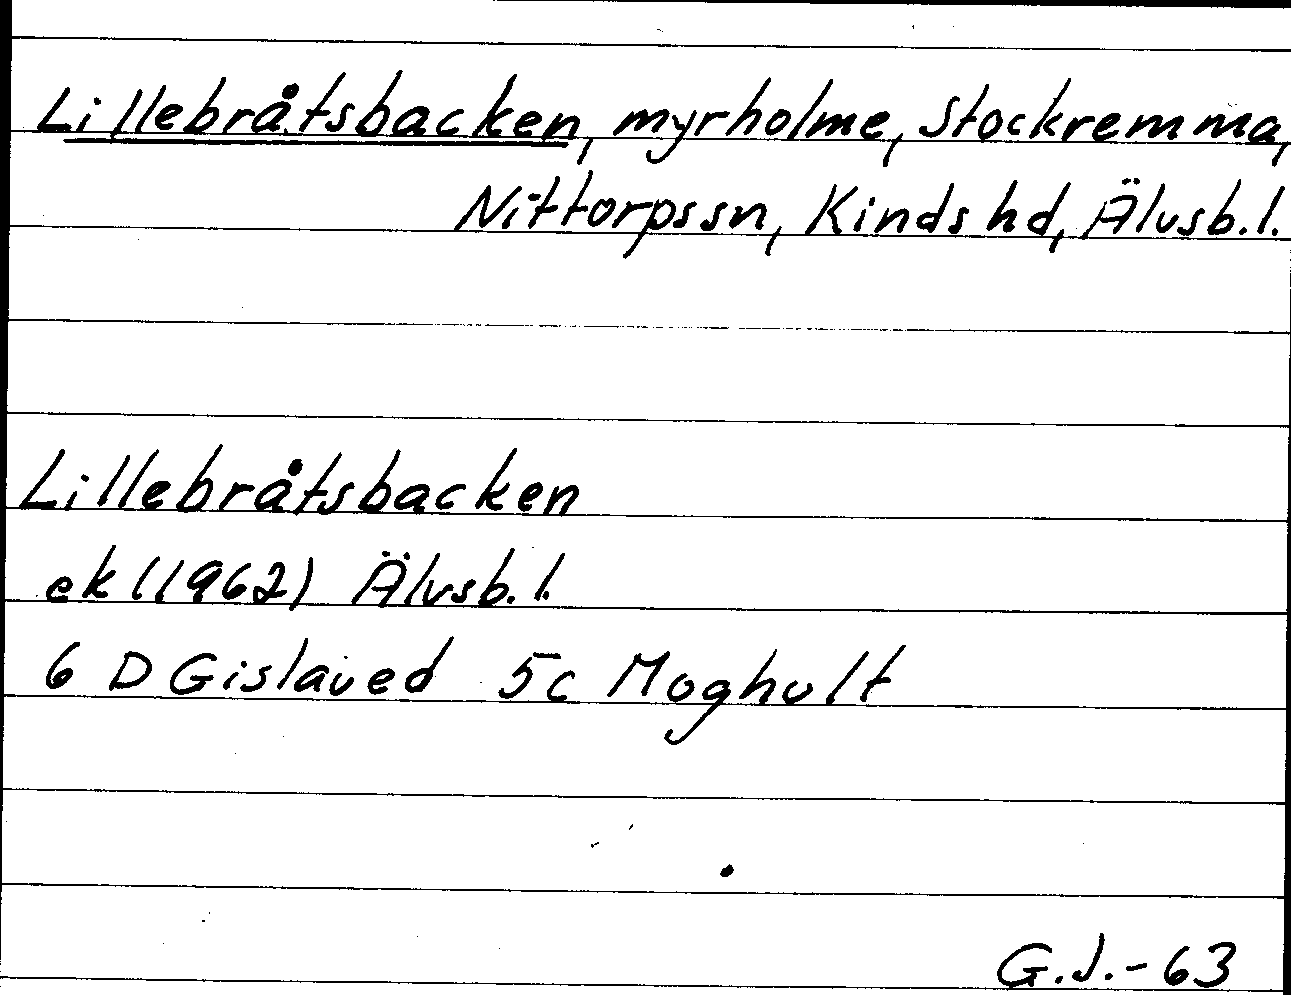 Lillebråtsbacken, myrholme, Stockremma,
Nittorpssn, Kinds hd, Älvsb.l.
Lillebråtsbacken
ek (1962) Älvsb.l.
6 D Gislaved 5c Moghult
G.J.-63